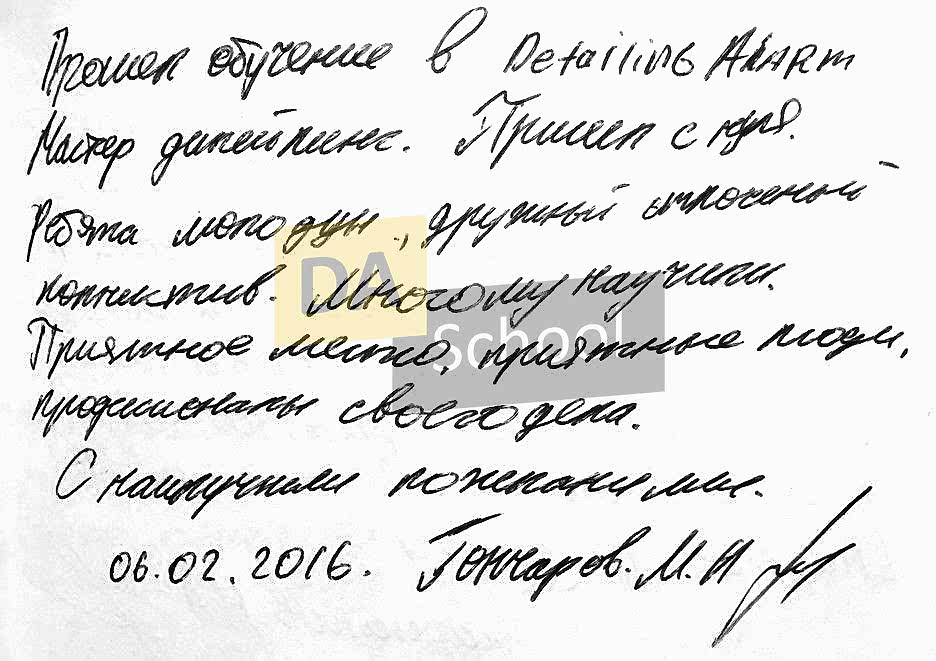 Прошел обучение в Detailing
Мастер детейлинг. Пришел с нуля.
Ребята молодцы, дружный сплоченый
коллектив. Многому научили.
DA
School
Приятное место, приятные люди,
профисионалы своего дела.
С наилучшими пожеланиями.
06.02.2016. Гончаров. М.И